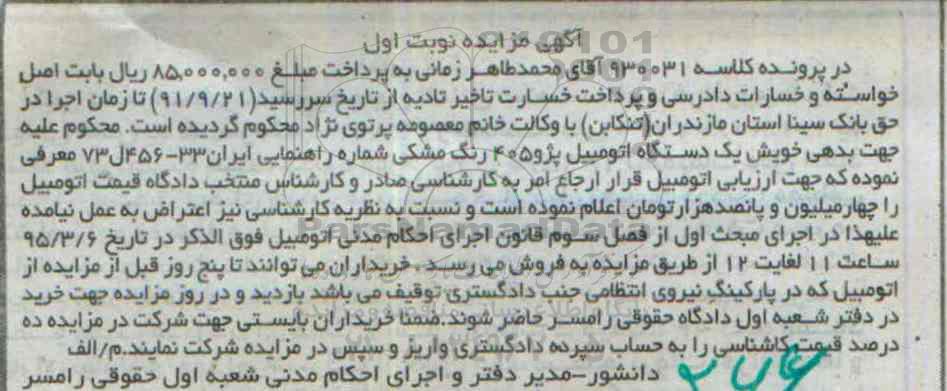 آگهی مزایده نوبت اول
در پرونده کلاسه ۹۳۰۰۳۱ آقای محمدطاهر زمانی به پرداخت مبلغ ۸۵,۰۰۰,۰۰۰ ریال بابت اصل
خواسته و خسارات دادرسی و پرداخت خسارت تاخیر تادیه از تاریخ سررسید(۹۱/۹/۲۱) تا زمان اجرا در
حق بانک سینا استان مازندران(تنکابن) با وکالت خانم معصومه پرتوی نژاد محکوم گردیده است. محکوم علیه
جهت بدهی خویش یک دستگاه اتومبیل پژو۴۰۵ رنگ مشکی شماره راهنمایی ایران۳۳-۴۵۶ل۷۳ معرفی
نموده که جهت ارزیابی اتومبیل قرار ارجاع امر به کارشناسی صادر و کارشناس منتخب دادگاه قیمت اتومبیل
را چهارمیلیون و پانصدهزارتومان اعلام نموده است و نسبت به نظریه کارشناسی نیز اعتراض به عمل نیامده
علیهذا در اجرای مبحث اول از فصل سوم قانون اجرای احکام مدنی اتومبیل فوق الذکر در تاریخ ۹۵/۳/۶
ساعت ۱۱ لغایت ۱۲ از طریق مزایده به فروش می رسد. خریداران می توانند تا پنج روز قبل از مزایده از
اتومبیل که در پارکینگ نیروی انتظامی جنب دادگستری توقیف می باشد بازدید و در روز مزایده جهت خرید
در دفتر شعبه اول دادگاه حقوقی رامسر حاضر شوند.ضمنا خریداران بایستی جهت شرکت در مزایده ده
درصد قیمت کاشناسی را به حساب سپرده دادگستری واریز و سپس در مزایده شرکت نمایند.م/الف
دانشور-مدیر دفتر و اجرای احکام مدنی شعبه اول حقوقی رامسر